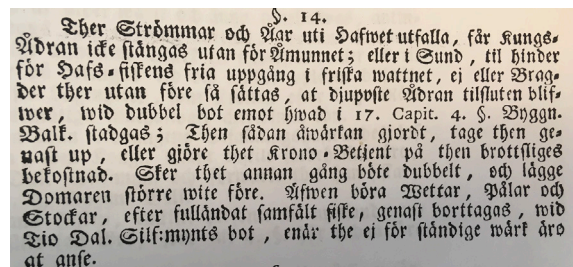 §. 14.
Ther Strömmar och Åar uti Hafwet utfalla, får Kungs-
Ådran icke stängas utan för Åmunnet; eller i Sund, til hinder
för Hafs-fiskens fria uppgång i friska wattnet, ej eller Brag-
der ther utan före så sättas, at djuposte Ådran tilsluten blif-
wer, wid dubbel bot emot hwad i 17. Capit. 4. §. Byggn.
Balk. stadgas; Then sådan åwärkan gjordt, tage then ge-
nast up, eller gjöre thet Krono-Betjent på then brottsliges
bekostnad. Sker thet annan gång böte dubbelt, och lägge
Domaren större wite före. Äfwen böra Wettar, Pålar och
Stockar, efter fulländat samfält fiske, genast borttagas, wid
Tio Dal. Silf:mynts bot, enär the ej för ständige wärk äro
at anse.